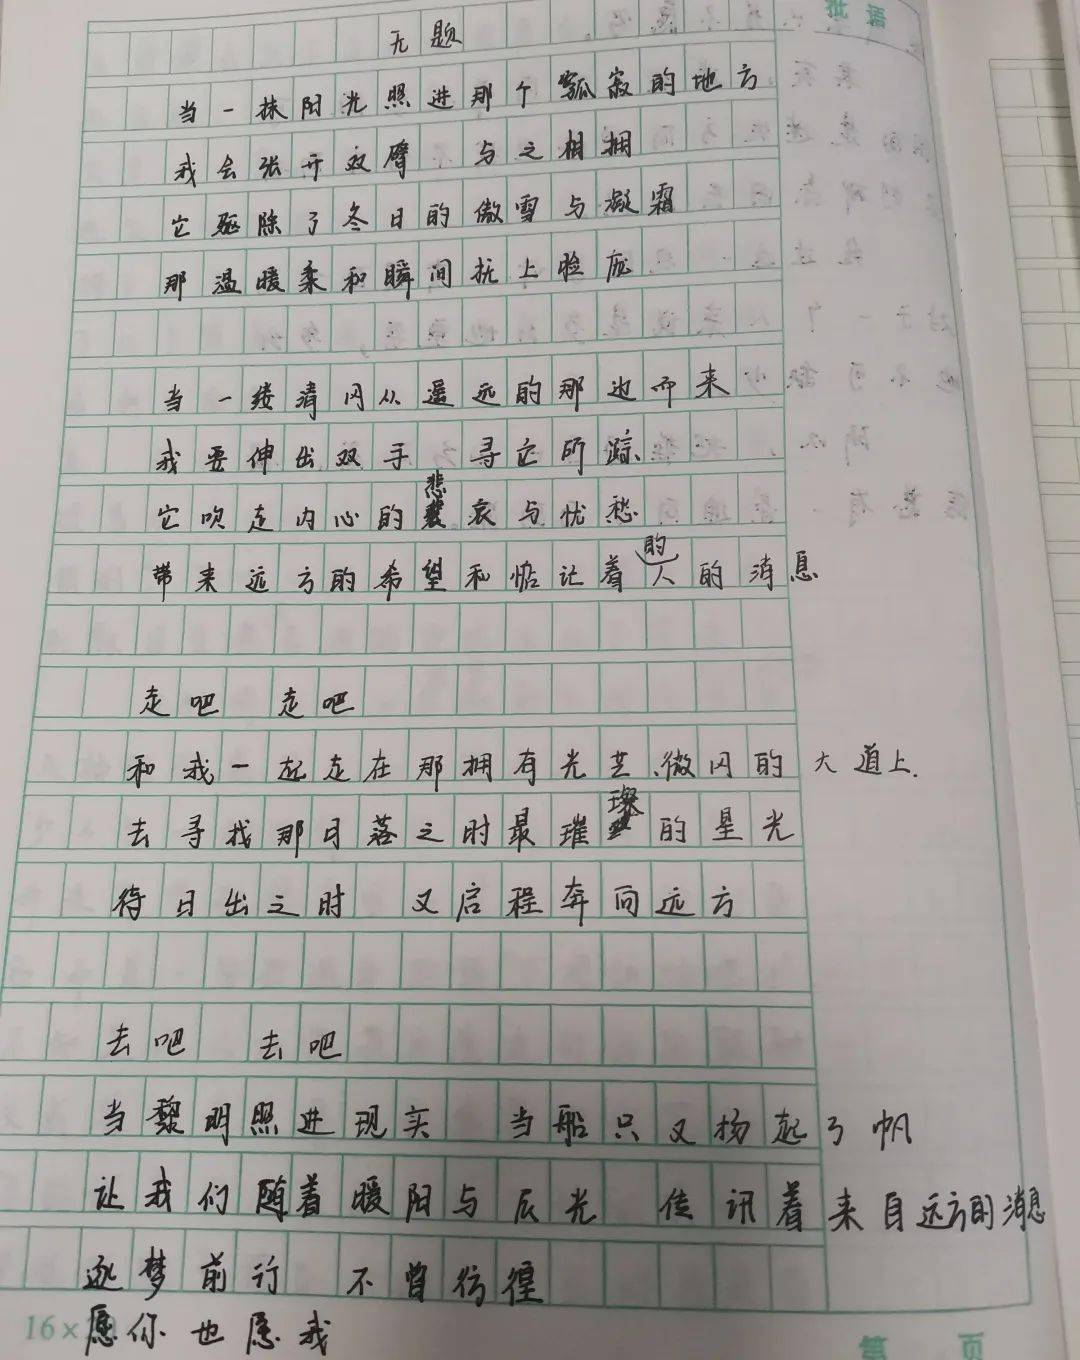 批语
无题
当一抹阳光照进那个孤寂的地方
我会张开双臂 与之相拥
它驱除了冬日的傲雪与凝霜
那温暖柔和瞬间抚上脸庞
当一缕清风从遥远的那边而来
我要伸出双手 寻它所踪
它吹走内心的悲哀与忧愁
带来远方的希望和惦记着的人的消息
走吧 走吧
和我一起走在那拥有光芒、微闪的大道上.
去寻找那日落之时最璀璨的星光
待日出之时 又启程奔向远方
去吧 去吧
当黎明照进现实 当船只又扬起了帆
让我们随着暖阳与辰光 传讯着来自远方的消息
逐梦前行 不曾彷徨
愿你也愿我
16×
第 页